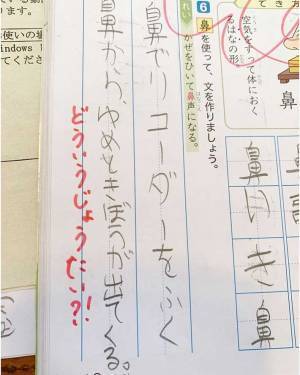 空気をすって体におく
るはなの形
6 鼻を使って、文を作りましょう。
れい かぜをひいて鼻声になる。
はなごえ
鼻でリコーダーをふく
鼻から、ゆめときぼうが出てくる。
どういうじょうたい?!
鼻
鼻血
鼻いき
鼻
使いの場
indows
てくださ
ります。